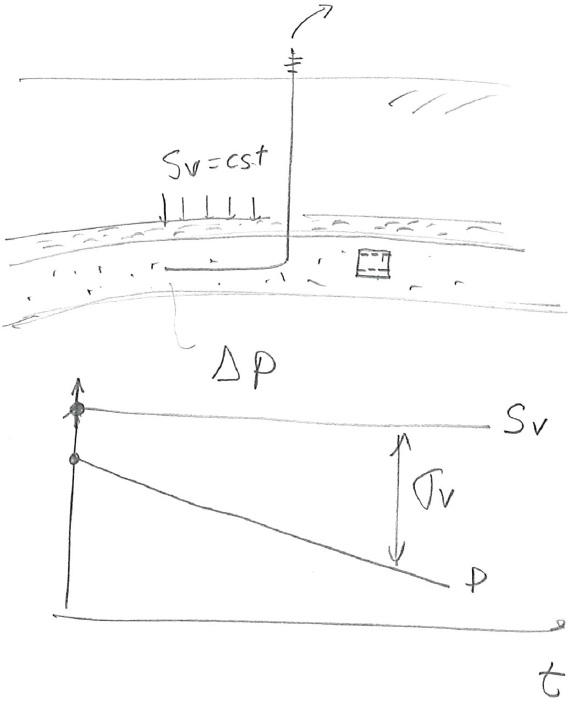 Sv = cst
ΔP
Sv
σv
P
t